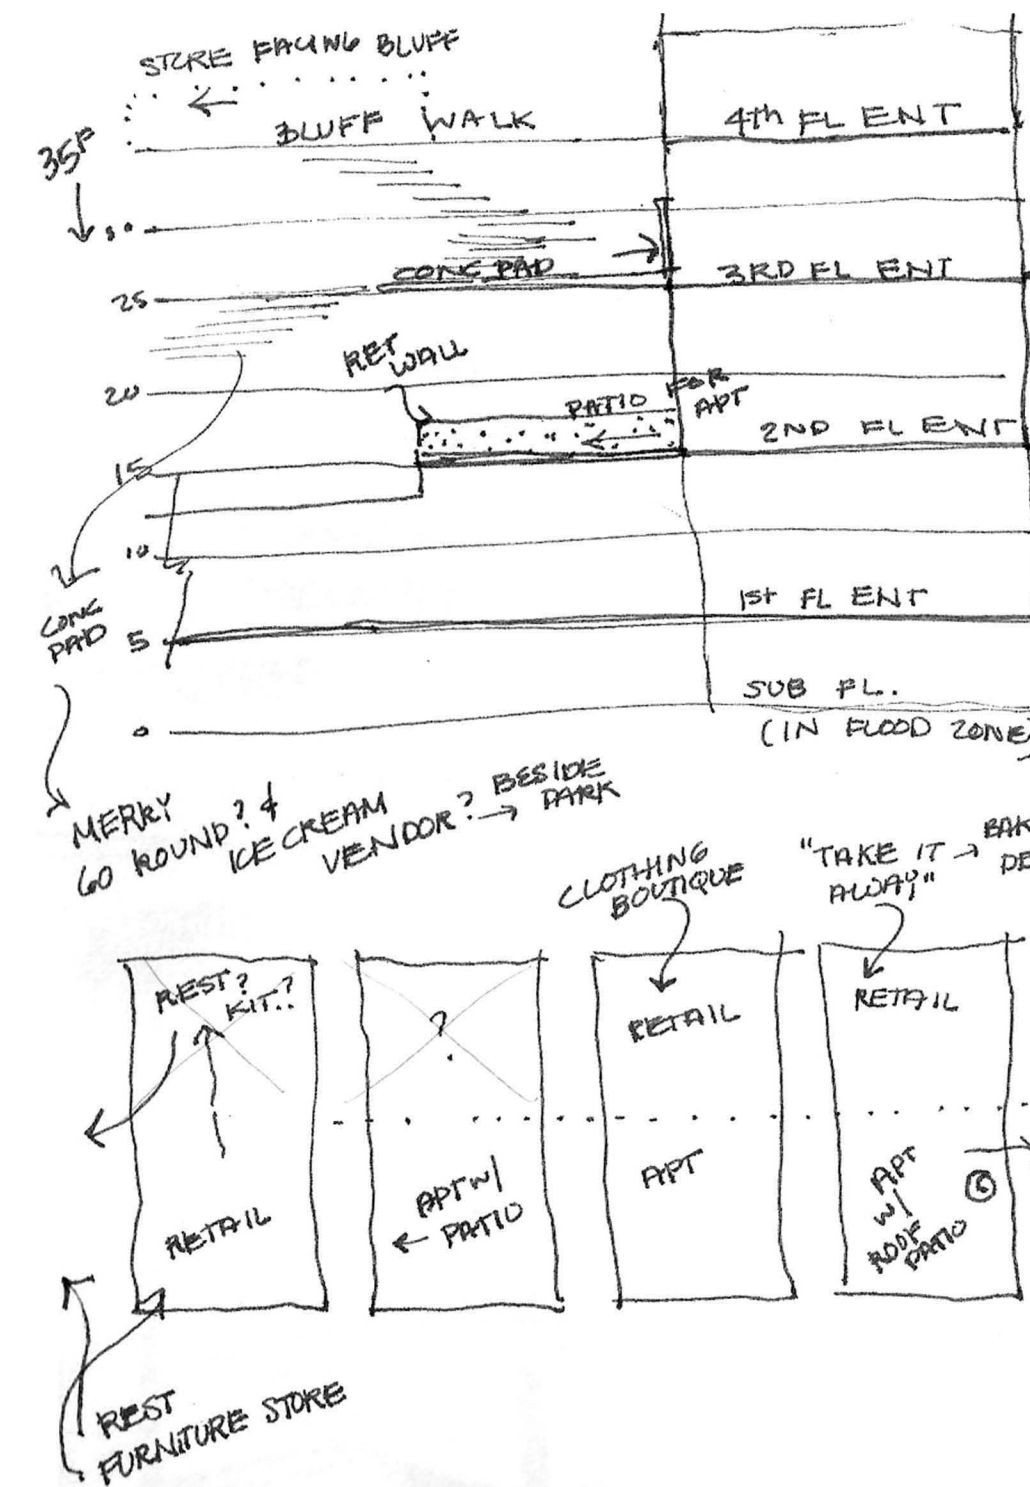 STORE FACING BLUFF
BLUFF WALK
4th FL ENT
35F
30
CONC PAD
3RD FL ENT
25
RET
WALL
20
PATIO FOR
APT
2ND FL ENT
15
10
1st FL ENT
CONC
PAD
5
SUB FL.
(IN FLOOD ZONE)
0
MERRY
GO ROUND? &
ICE CREAM
VENDOR? → BESIDE
PARK
CLOTHING
BOUTIQUE
"TAKE IT → BAK
AWAY" DE
REST?
KIT.?
?
RETAIL
RETAIL
RETAIL
← APT W/
PATIO
APT
APT
W/
ROOF
PATIO
6
REST
FURNITURE STORE